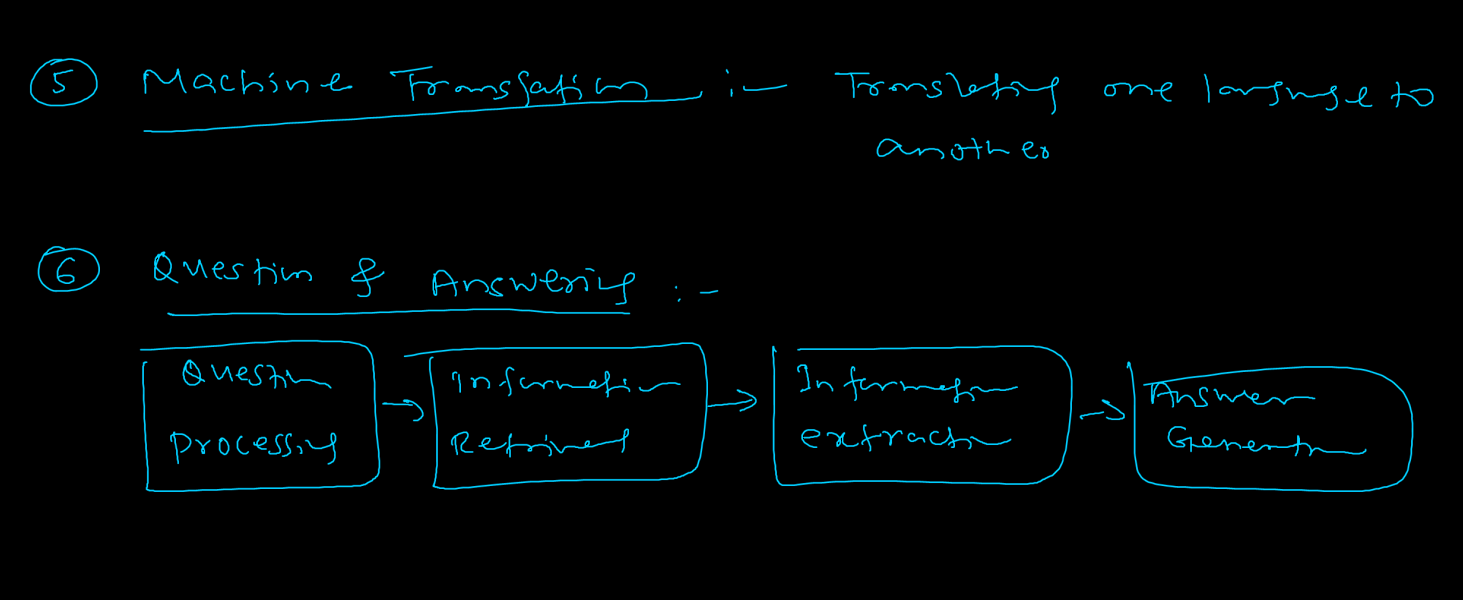 5 Machine Translation :- Translating one language to
another
6 Question & Answering :-
Question
Processing
Information
Retrieval
Information
extraction
Answer
Generation